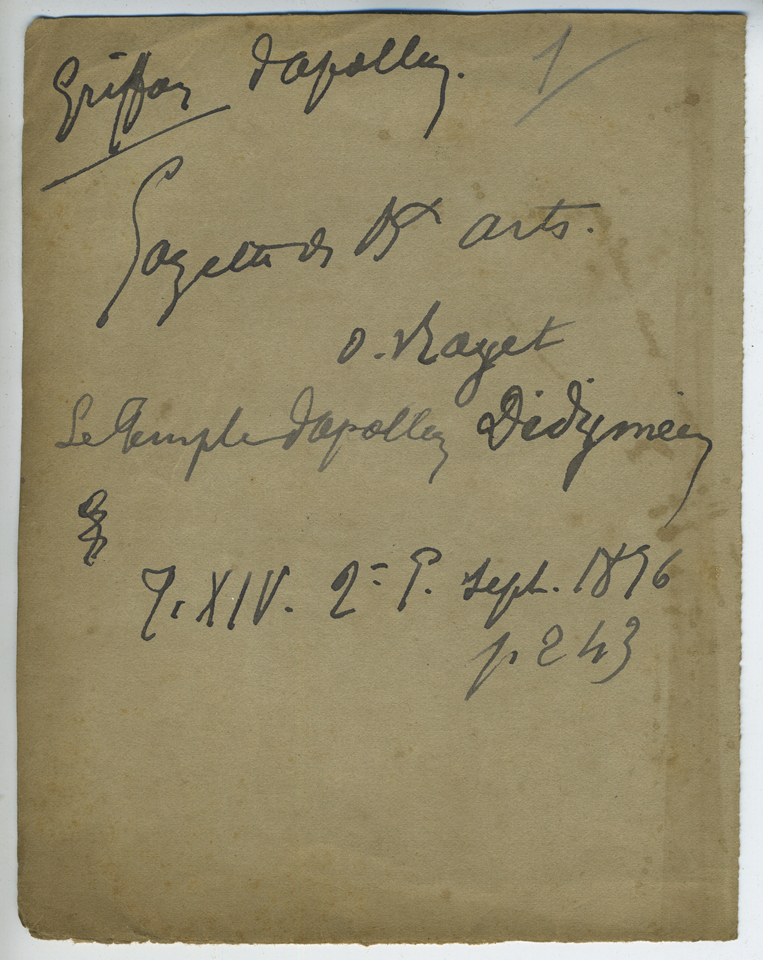 Griffon d'apollon. 1
Gazette des Bx arts.
O. Rayet
Le Temple d'apollon Didyméen
T. XIV. 2e P. Sept. 1896
p. 243